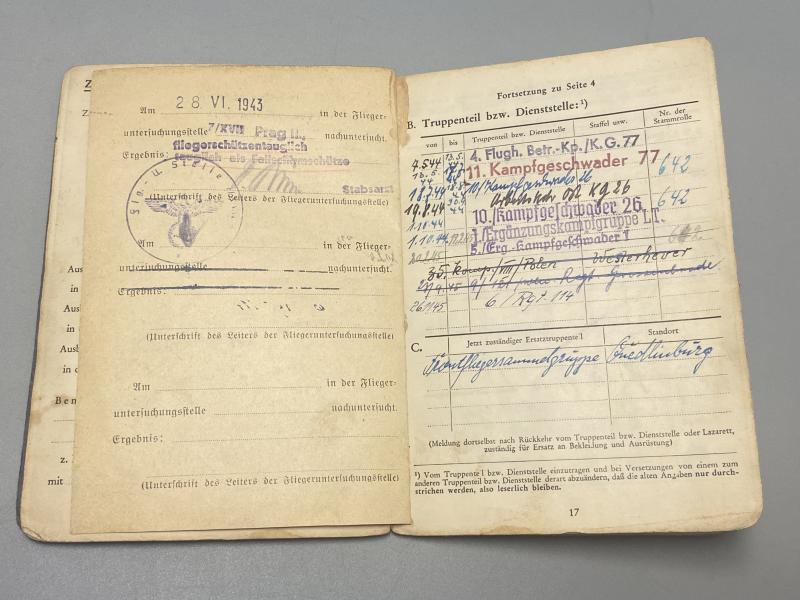 Am 28 VI. 1943 in der Flieger-
untersuchungsstelle 7/XVII Prag II., nachuntersucht.
fliegerschützentauglich
Ergebnis: tauglich als Fallschirmschütze
Stabsarzt
Flg.-U.Stelle
(Unterschrift des Leiters der Fliegeruntersuchungsstelle)
Am in der Flieger-
untersuchungsstelle nachuntersucht.
Ergebnis:
(Unterschrift des Leiters der Fliegeruntersuchungsstelle)
Am in der Flieger-
untersuchungsstelle nachuntersucht.
Ergebnis:
(Unterschrift des Leiters der Fliegeruntersuchungsstelle)
Fortsetzung zu Seite 4
B. Truppenteil bzw. Dienststelle: ¹)
von bis Truppenteil bzw. Dienststelle Staffel usw. Nr. der Stammrolle
4. Flugh. Betr.-Kp./K.G. 77
11. Kampfgeschwader 77 642
18.7.44 10/Kampfgeschwader 26
19.8.44 KG 26
1.10.44 10./Kampfgeschwader 26 642
1.10.44 7./Ergänzungskampfgruppe LT.
20.2.45 5./Erg.-Kampfgeschwader 1
35. Komp/VIII/Polen Westerhever
26.11.45 6/Rgt 114
C. Jetzt zuständiger Ersatztruppenteil Standort
Frontfliegersammelgruppe Quedlinburg
(Meldung dortselbst nach Rückkehr vom Truppenteil bzw. Dienststelle oder Lazarett,
zuständig für Ersatz an Bekleidung und Ausrüstung)
¹) Vom Truppenteil bzw. Dienststelle einzutragen und bei Versetzungen von einem zum
anderen Truppenteil bzw. Dienststelle derart abzuändern, daß die alten Angaben nur durch-
strichen werden, also leserlich bleiben.
17